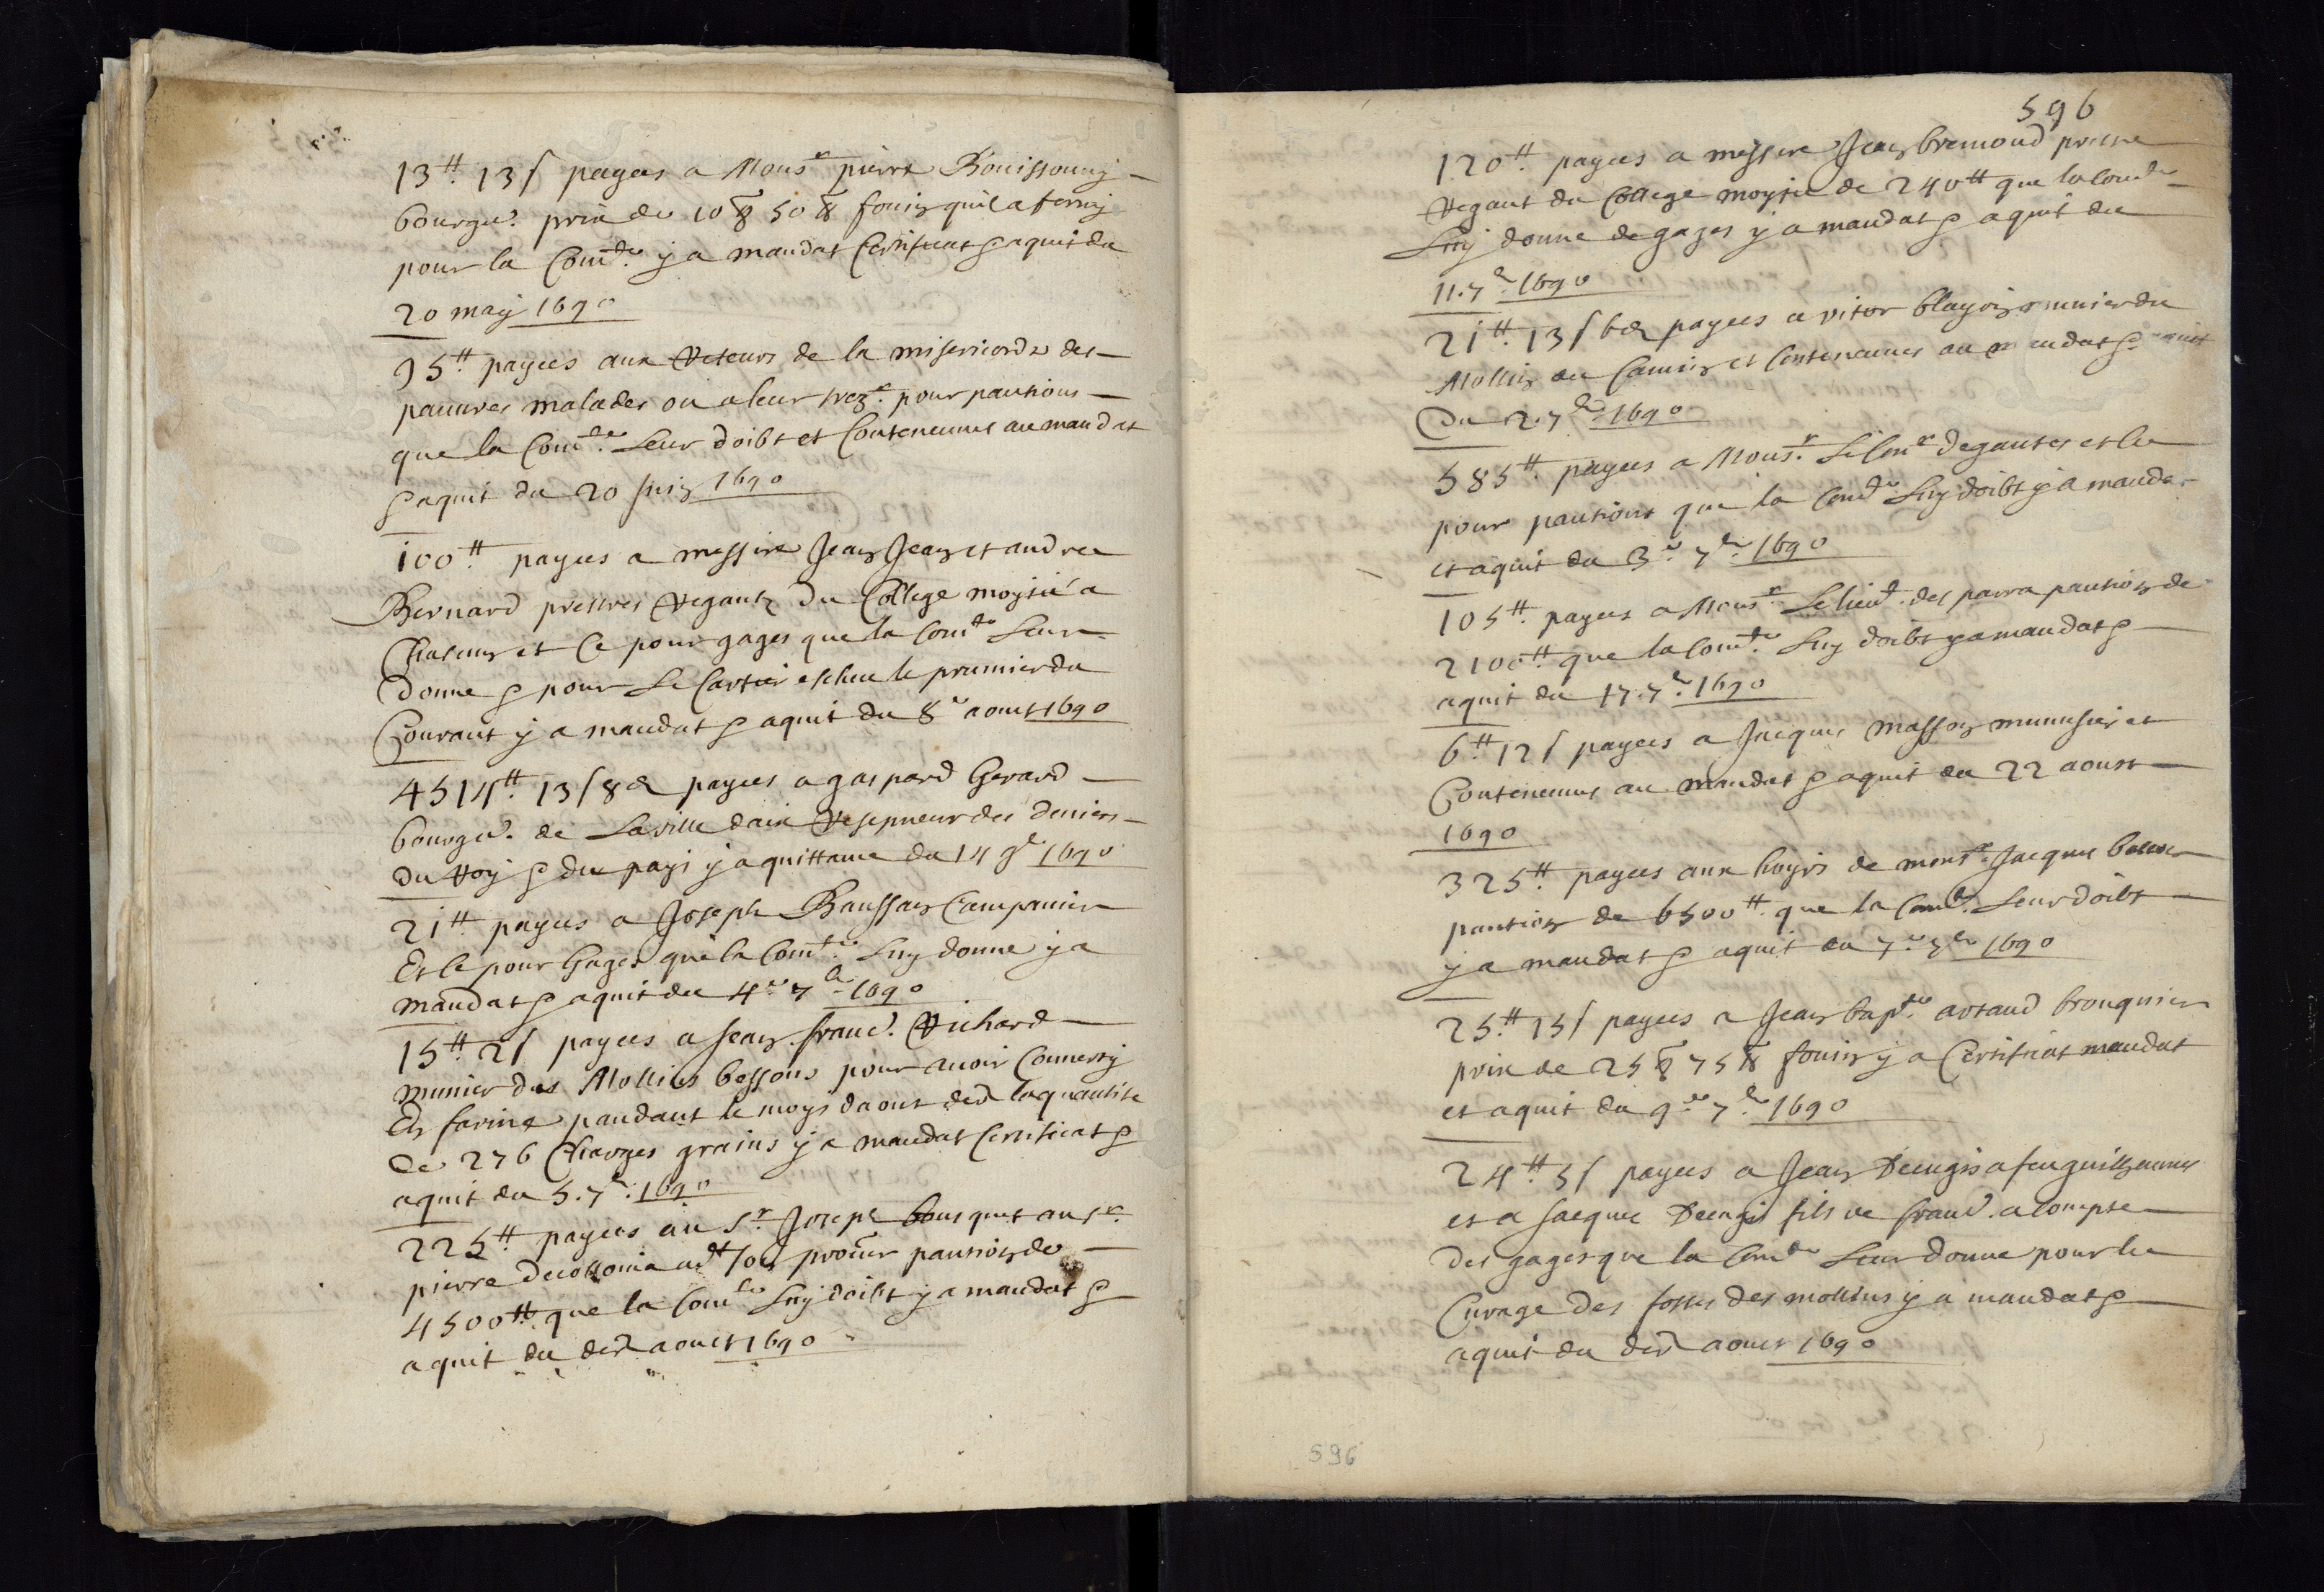 13tt 13 s payees a Monsr pierre Bouissouny
bourgs. prix de 10 50 fouin quil a forny
pour la Comte. y a mandat Certificat & aquit du
20 may 1690
95tt payees aux Recteurs de la misericorde des
pauvres malades ou a leur trezr. pour pantions
que la Comte. Leur doibt et Conteneues au mandat
& aquit du 20 juin 1690
100tt payees a messire Jean Jean et andre
Bernard prestres Regantz du College moytie a
Chascung et Ce pour gages que la Comte Leur
Donne & pour Le Cartier escheu le premier du
Courant y a mandat & aquit du 8e aoust 1690
4514tt 13 s 8 d payees a gaspard Gerard
bourgs. de La ville daix des deniers
du Roy & du pays y a quittance du 14 9bre 1690
21tt payees a Joseph Baussan Campanier
Et Ce pour Gages que la Comte. Luy donne y a
mandat & aquit du 4e 7bre 1690
15tt 2 s payees a Jean franc. Richard
munier des Mollins bessons pour avoir Converty
En farine pandant le moys daoust der la quantite
De 276 Charges grains y a mandat Certificat &
aquit du 5. 7bre. 1690
225tt payees au Sr Joseph bousquet au sr
pierre son procur pantion de
4500tt que la Comte Luy doibt y a mandat &
aquit du der aoust 1690
596
120tt payees a messire Jean bremond prestre
Regant du College moytie de 240tt que la Comte
Luy donne de gages y a mandat & aquit du
11. 7bre 1690
21tt 13 s 6 d payees a vitor blayon munier du
Mollin du Camin et Conteneues au mandat & aquit
Du 2. 7bre 1690
585tt payees a Monsr. Le Conr degantes et Ce
pour pantions que la Comte Luy doibt y a mandat
et aquit du 3e 7bre 1690
105tt payees a Monsr Le lieut. des parra pantion de
2100tt que la Comte. Luy doibt y a mandat &
aquit du 17. 7bre. 1690
6tt 12 s payees a Jacques Masson munusier et
Conteneues au mandat & aquit du 22 aoust
1690
325tt payees aux hoyrs de monsr. Jacques
pantion de 6500tt que la Comte. Leur doibt
y a mandat & aquit du 7e 7bre 1690
25tt 15 s payees a Jean bapte. artaud brouquier
prix de 25 75 fouin y a Certificat mandat
et aquit du 9e 7bre 1690
24tt 5 s payees a Jean Deengis a feu guilheaumes
et a Jacques Deengis fils de franc. a Compte
Des gages que la Comte Leur donne pour Le
Curage des fosses des mollins y a mandat &
aquit du der aoust 1690
596